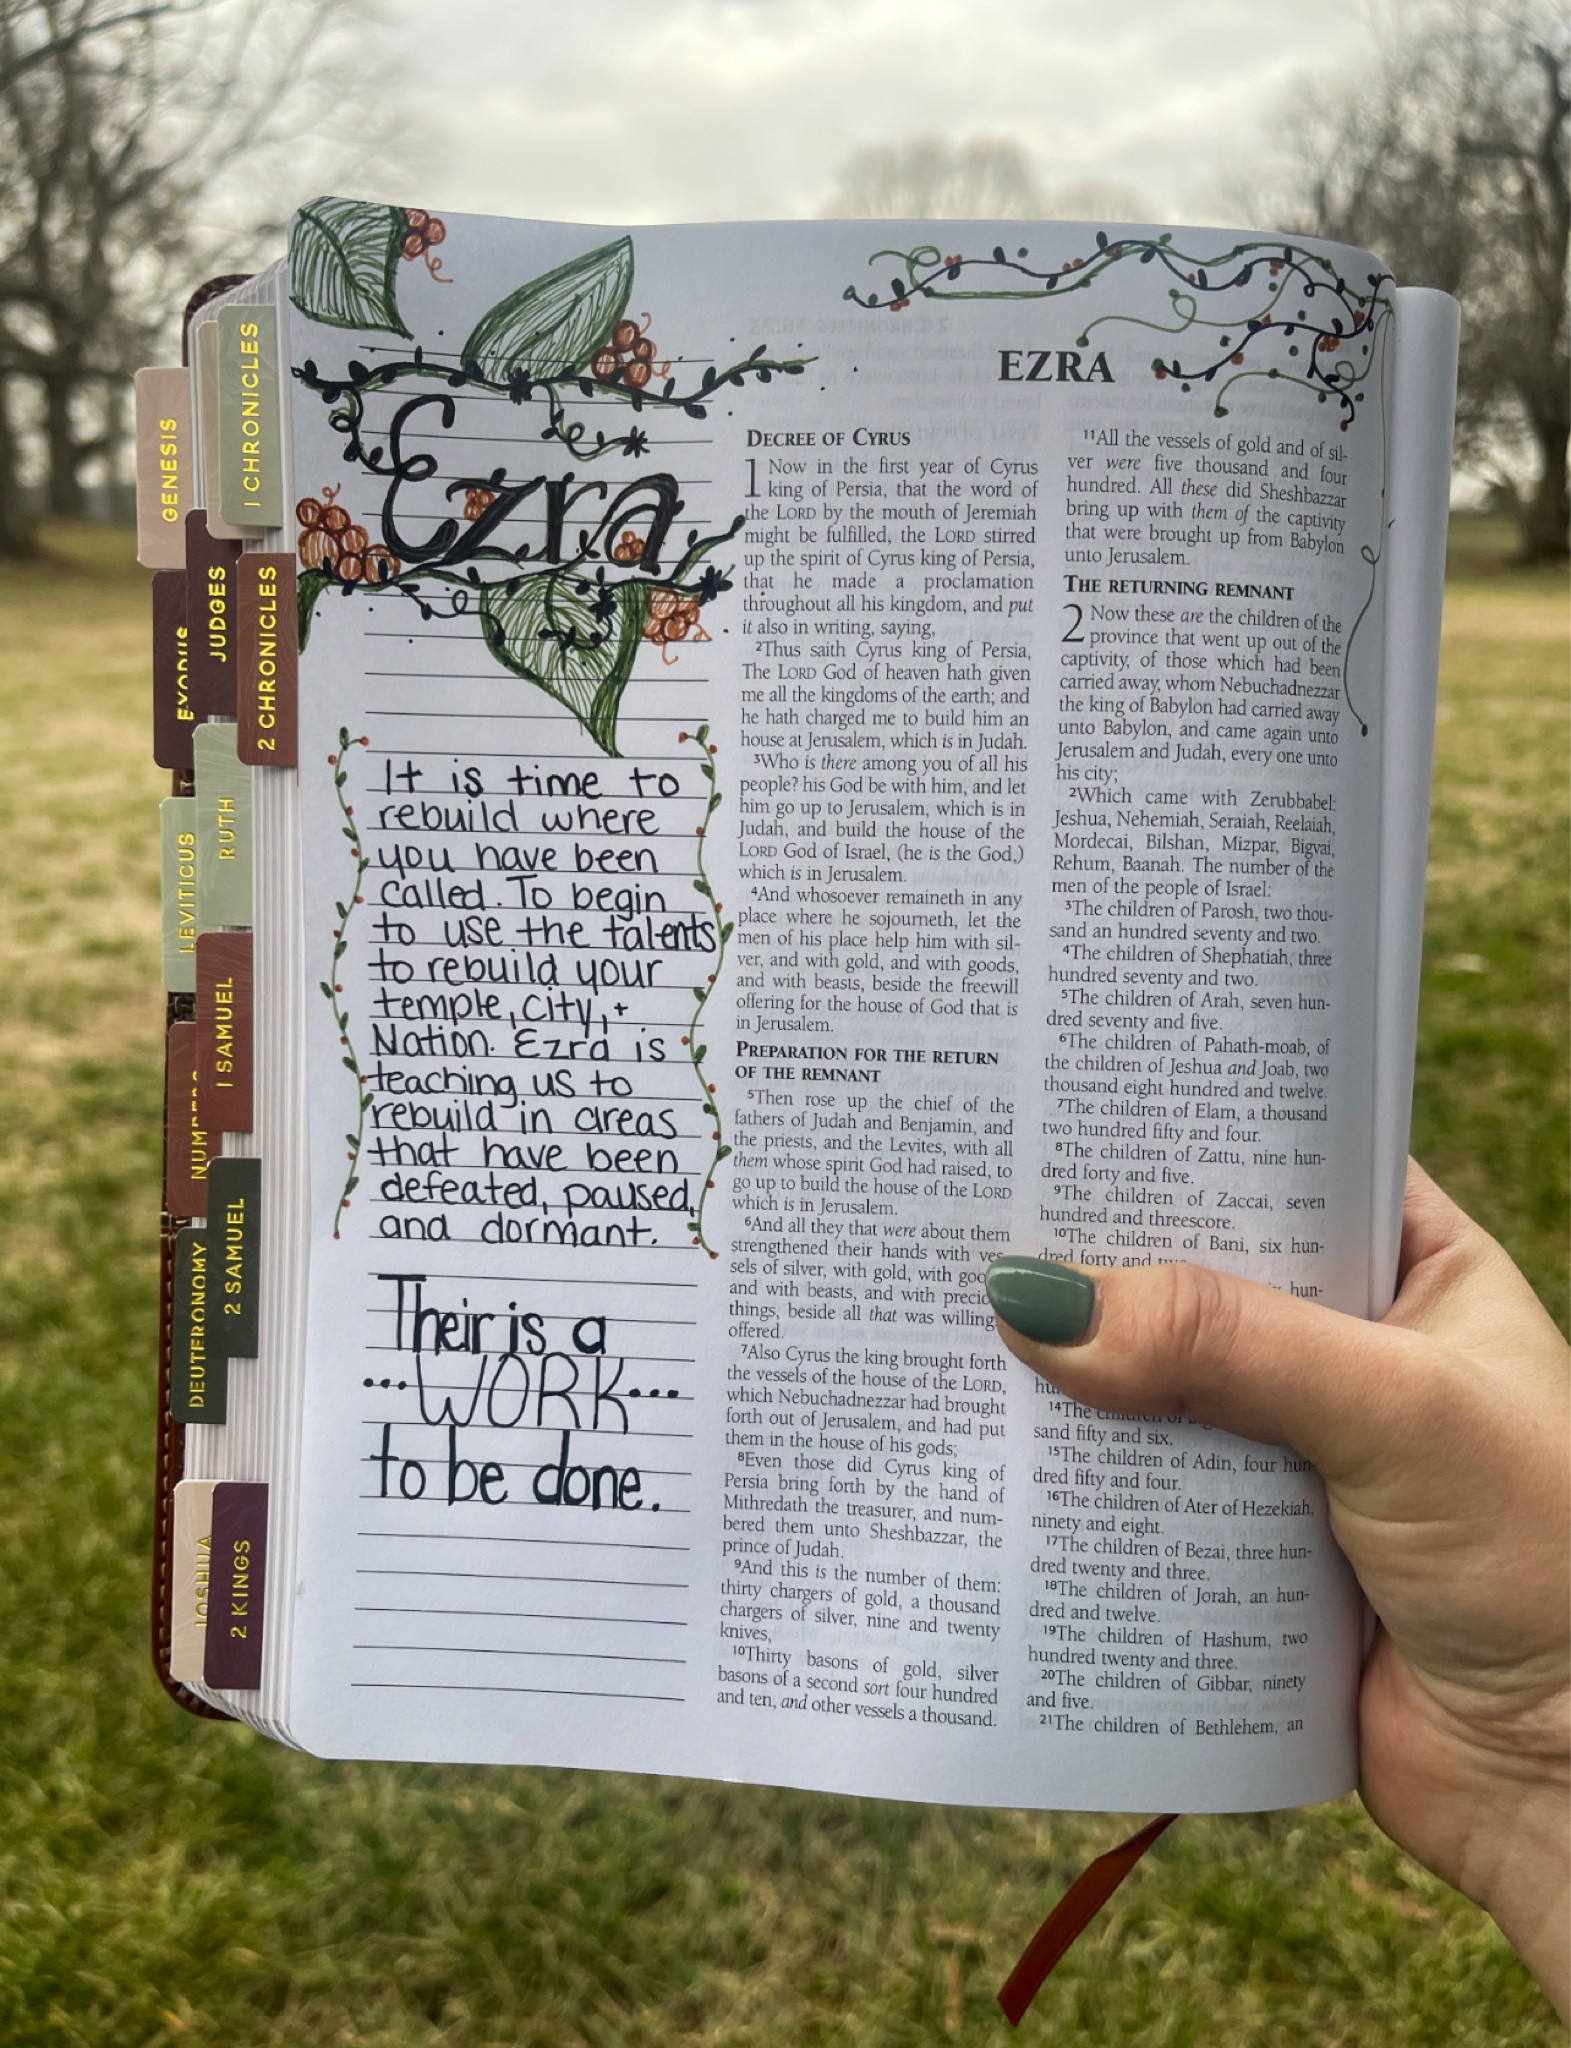 GENESIS
1 CHRONICLES
JUDGES
2 CHRONICLES
RUTH
LEVITICUS
1 SAMUEL
2 SAMUEL
DEUTERONOMY
JOSHUA
2 KINGS
Ezra
It is time to
rebuild where
you have been
called. To begin
to use the talents
to rebuild your
temple, city, +
Nation. Ezra is
teaching us to
rebuild in areas
that have been
defeated, paused,
and dormant.
Their is a
...WORK...
to be done.
EZRA
DECREE OF CYRUS
1 Now in the first year of Cyrus
king of Persia, that the word of
the LORD by the mouth of Jeremiah
might be fulfilled, the LORD stirred
up the spirit of Cyrus king of Persia,
that he made a proclamation
throughout all his kingdom, and put
it also in writing, saying,
2Thus saith Cyrus king of Persia,
The LORD God of heaven hath given
me all the kingdoms of the earth; and
he hath charged me to build him an
house at Jerusalem, which is in Judah.
3Who is there among you of all his
people? his God be with him, and let
him go up to Jerusalem, which is in
Judah, and build the house of the
LORD God of Israel, (he is the God,)
which is in Jerusalem.
4And whosoever remaineth in any
place where he sojourneth, let the
men of his place help him with sil-
ver, and with gold, and with goods,
and with beasts, beside the freewill
offering for the house of God that is
in Jerusalem.
PREPARATION FOR THE RETURN
OF THE REMNANT
5Then rose up the chief of the
fathers of Judah and Benjamin, and
the priests, and the Levites, with all
them whose spirit God had raised, to
go up to build the house of the LORD
which is in Jerusalem.
6And all they that were about them
strengthened their hands with ves-
sels of silver, with gold, with
and with beasts, and with
things, beside all that was
offered.
7Also Cyrus the king brought forth
the vessels of the house of the LORD,
which Nebuchadnezzar had brought
forth out of Jerusalem, and had put
them in the house of his gods;
8Even those did Cyrus king of
Persia bring forth by the hand of
Mithredath the treasurer, and num-
bered them unto Sheshbazzar, the
prince of Judah.
9And this is the number of them:
thirty chargers of gold, a thousand
chargers of silver, nine and twenty
knives,
10Thirty basons of gold, silver
basons of a second sort four hundred
and ten, and other vessels a thousand.
11All the vessels of gold and of sil-
ver were five thousand and four
hundred. All these did Sheshbazzar
bring up with them of the captivity
that were brought up from Babylon
unto Jerusalem.
THE RETURNING REMNANT
2 Now these are the children of the
province that went up out of the
captivity, of those which had been
carried away, whom Nebuchadnezzar
the king of Babylon had carried away
unto Babylon, and came again unto
Jerusalem and Judah, every one unto
his city;
2Which came with Zerubbabel:
Jeshua, Nehemiah, Seraiah, Reelaiah,
Mordecai, Bilshan, Mizpar, Bigvai,
Rehum, Baanah. The number of the
men of the people of Israel:
3The children of Parosh, two thou-
sand an hundred seventy and two.
4The children of Shephatiah, three
hundred seventy and two.
5The children of Arah, seven hun-
dred seventy and five.
6The children of Pahath-moab, of
the children of Jeshua and Joab, two
thousand eight hundred and twelve.
7The children of Elam, a thousand
two hundred fifty and four.
8The children of Zattu, nine hun-
dred forty and five.
9The children of Zaccai, seven
hundred and threescore.
10The children of Bani, six hun-
dred forty and
hun-
14The children of
sand fifty and six.
15The children of Adin, four hun-
dred fifty and four.
16The children of Ater of Hezekiah,
ninety and eight.
17The children of Bezai, three hun-
dred twenty and three.
18The children of Jorah, an hun-
dred and twelve.
19The children of Hashum, two
hundred twenty and three.
20The children of Gibbar, ninety
and five.
21The children of Bethlehem, an